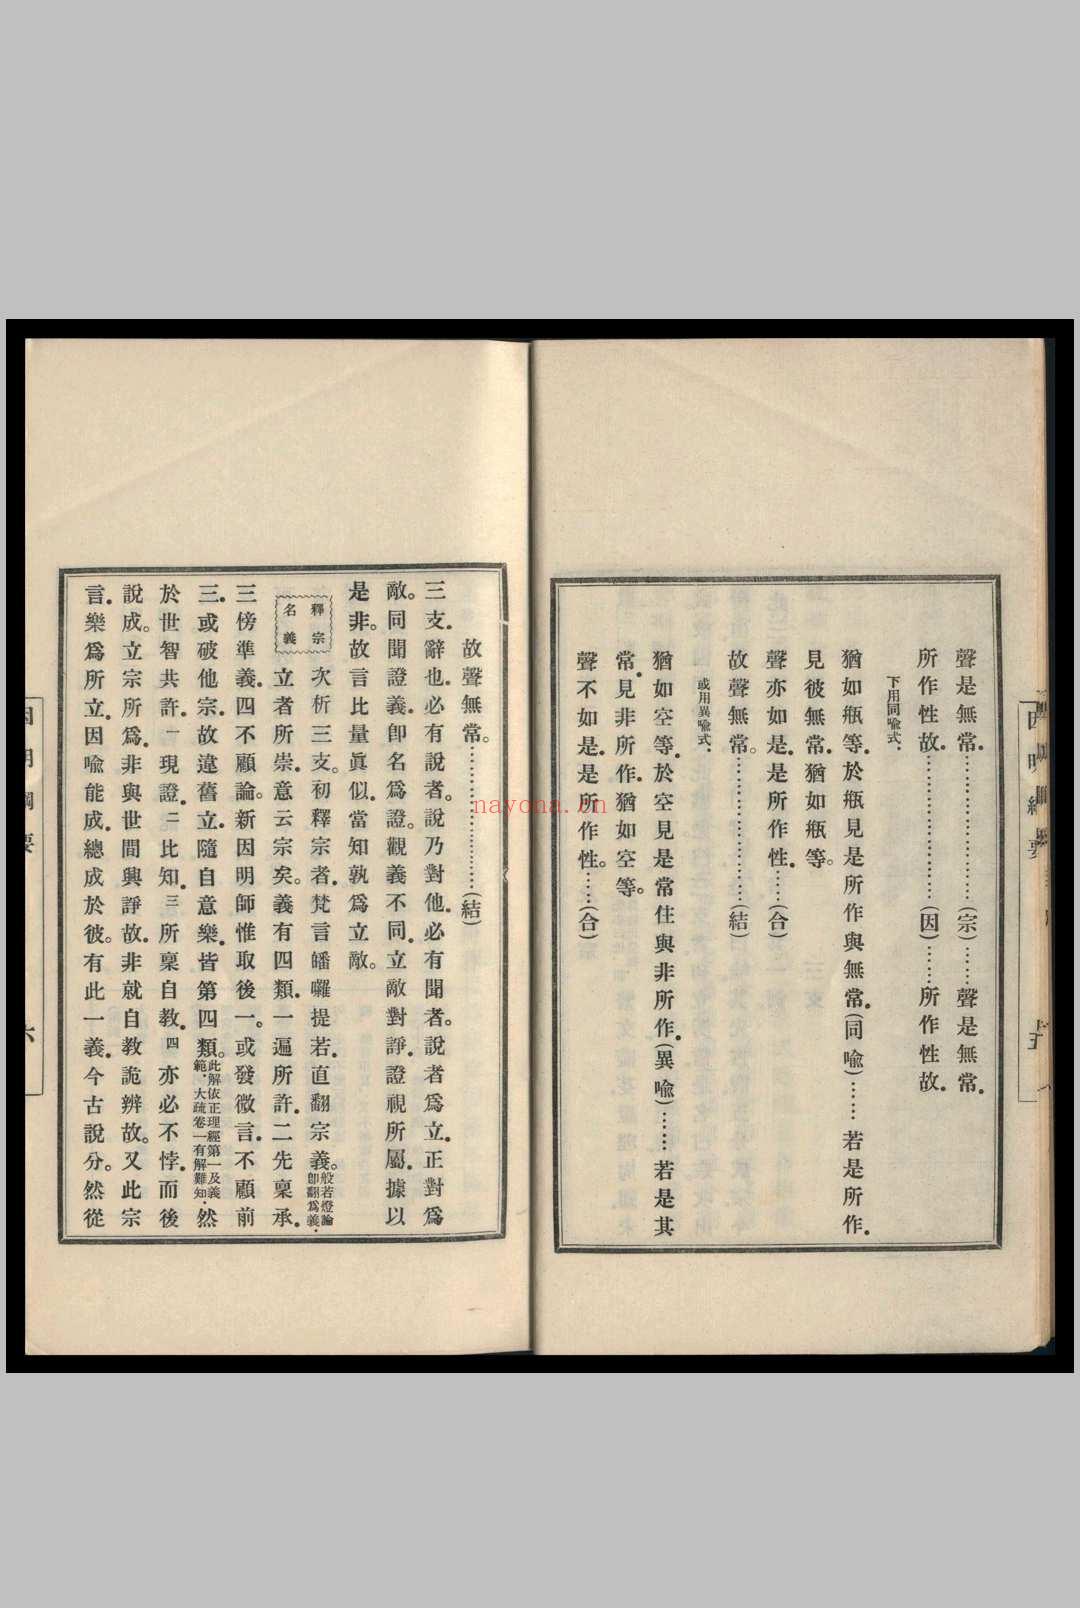 聲是無常。…………………(宗)……聲是無常。
所作性故。…………………(因)……所作性故。
下用同喻式、
猶如瓶等。於瓶見是所作與無常。(同喻)……若是所作。
見彼無常。猶如瓶等。
聲亦如是。是所作性。……(合)
故聲無常。…………………(結)
或用異喻式、
猶如空等。於空見是常住與非所作。(異喻)……若是其
常。見非所作。猶如空等。
聲不如是。是所作性。……(合)
因明綱要
五
故聲無常。…………………(結)
三支。辭也。必有說者。說乃對他。必有聞者。說者爲立。正對爲
敵。同聞證義。卽名爲證。觀義不同。立敵對諍。證視所屬。據以
是非。故言比量眞似。當知孰爲立敵。
釋宗
名義
次析三支。初釋宗者。梵言皤囉提若。直翻宗義。般若燈論
卽翻爲義。
立者所崇。意云宗矣。義有四類。一遍所許。二先稟承。
三傍準義。四不顧論。新因明師惟取後一。或發微言。不顧前
三。或破他宗。故違舊立。隨自意樂。皆第四類。此解依正理經第一及義
範。大疏卷一有解難知。然
於世智共許。一現證。二比知。三所稟自教。四亦必不悖。而後
說成。立宗所爲。非與世間興諍故。非就自教詭辨故。又此宗
言。樂爲所立。因喻能成。總成於彼。有此一義。今古說分。然從
因明綱要
六
nayona.cn